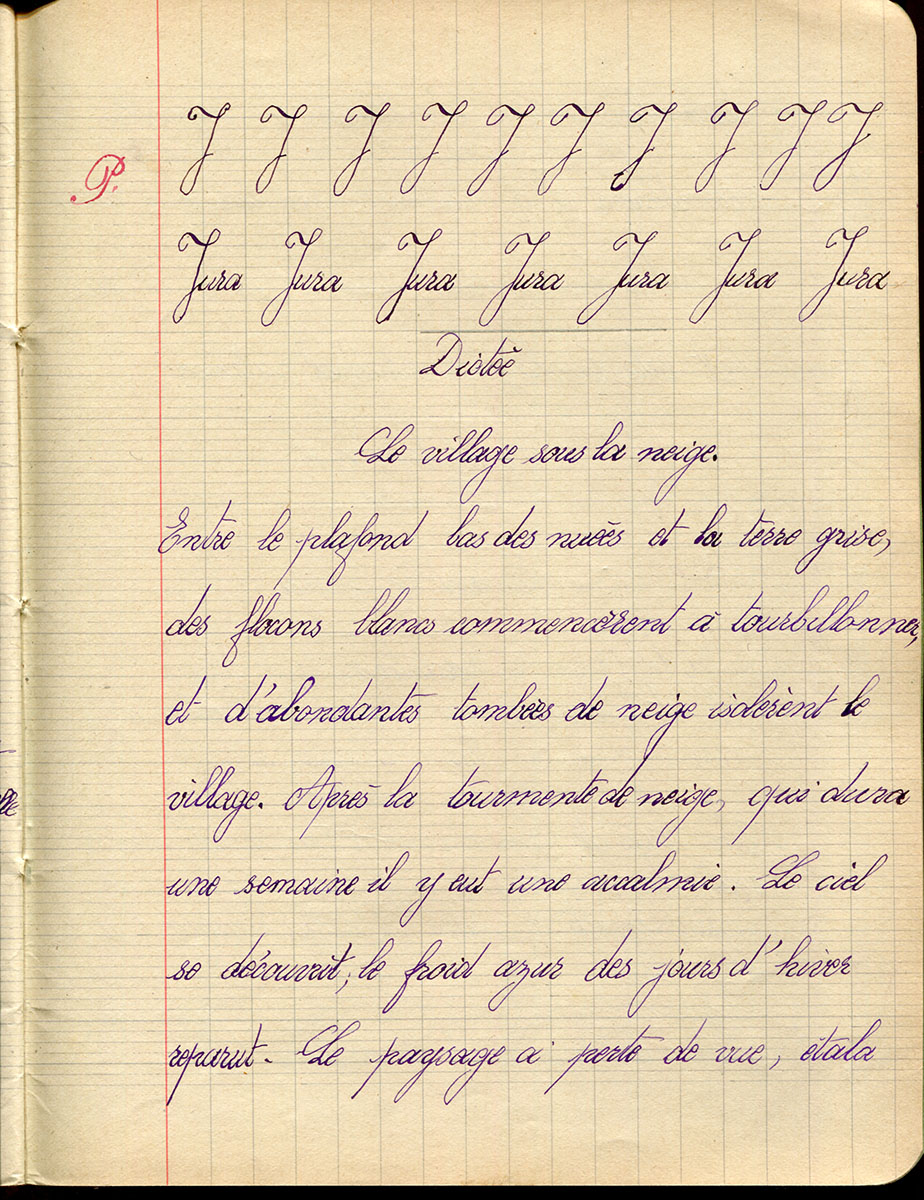 J J J J J J J J J J
P.
Jura Jura Jura Jura Jura Jura Jura
Dictée
Le village sous la neige.
Entre le plafond bas des nuées et la terre grise,
des flocons blancs commencèrent à tourbillonner,
et d'abondantes tombées de neige isolèrent le
village. Après la tourmente de neige, qui dura
une semaine il y eut une accalmie. Le ciel
se découvrit, le froid azur des jours d'hiver
reparut. Le paysage à perte de vue, étala